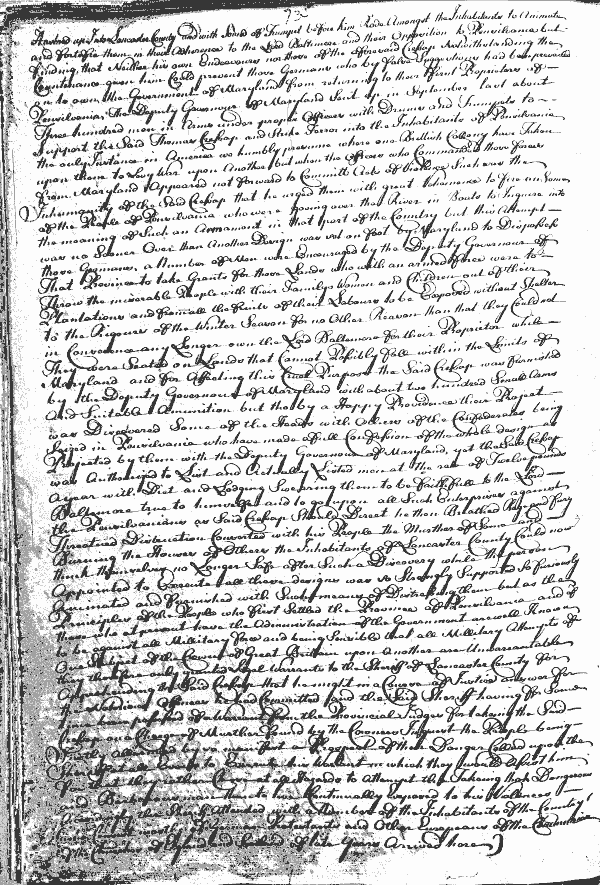 73
Harford up into Lancaster County and with Sound of Trumpet before him Rode Amongst the Inhabitants to Animate
and fortifie them in their Adherence to the Lord Baltimore and their Opposition to Pensilvania but
finding that Neither his own Endeavours nor those of the aforesaid Cresap Notwithstanding the
Countenance given him Could prevent those Germans who by false Suggestions had been prevailed
on to own the Government of Maryland from returning to their first Proprietors of
Pensilvania The Deputy Governour of Maryland Sent up in September last about
Three hundred men in Arms under proper Officers with Drums and Trumpets to
Support the Said Thomas Cresap and Strike Terror into the Inhabitants of Pensilvania
the only Instance in America we humbly presume where one Brittish Collony have Taken
upon them to Levy War upon Another but when the Officer who Commanded those forces
from Maryland Appeared not forward to Committ Acts of Violence Such was the
Inhumanity of the Said Cresap that he urged them with great Vehemence to fire on Some
of the People of Pensilvania who were going over that River in Boats to Inquire into
the meaning of Such an Armament in that part of the Country but this Attempt
was no Sooner Over than Another Design was set on foot by Maryland to Dispossess
those Germans, a Number of Men were Encouraged by the Deputy Governour of
That Province to take Grants for those Lands who with an armed force were to
Throw the miserable People with their Familys Women and Children out of their
Plantations and from all the fruits of their Labours to be Exposed without Shelter
to the Rigours of the Winter Season for no Other Reason than that they Could not
in Conscience any Longer own the Lord Baltimore for their Proprietor while
They were Seated on Lands that Cannot Possibly fall within the Limits of
Maryland and for Affecting this Cruel Purpose the Said Cresap was furnished
by the Deputy Governour of Maryland with about two hundred Small Arms
And Suitable Amunition but the by a Happy Providence their Project
was Discovered Some of the Heads with Others of the Confederates being
Seized in Pensilvania who have made of full Confession of the whole design as
Projected by them with the Deputy Governour of Maryland, yet the Said Cresap
was Authorized to List and Actually Listed men at the rate of Twelve pounds
a year with Diet and Lodging Swearing them to be faithfull to the Lord
Baltimore true to himself and to go upon all Such Enterprises against
the Pensilvanians as Said Cresap Should Direct he then Breathed Rage and fury
Threatned Distruction Concerted with his People the Murther of Some and
Burning the Houses of Others the Inhabitants of Lancaster County Could now
think themselves no Longer Safe after Such a Discovery while the person
Appointed to Execute all these designs was so Strongly Supported so furiously
Animated and furnished with Such means of Distroying them but as the
Principles of the People who first Settled the Province of Pensilvania and of
those who at present have the Administration of the Government are well Known
to be against all Millitary force and being Sensible that all Millitary Attempts of
One Subject of the Crown of Great Brittain upon Another are Unwarrantable
they therefore only granted Legal Warrants to the Sheriff of Lancaster County for
Apprehending the Said Cresap that he might in a Course of Justice answer for
the Various Offences he had Committed and the Said Sheriff having for Some
time been possessed of a Warrant from the Provincial Judges for taking the Said
Cresap on a Charge of Murther found by the Coroners Inquest the People being
greatly Allarmed by a prospect of their Danger Called upon the
Sheriff to Execute his Warrant in which they would Assist him
that they rather Chose at all Hazards to Attempt the Taking that Dangerous
and Barbarous man than to live Continually Exposed to his Violences
the Sheriff Attended with a Number of the Inhabitants of the County
mostly of German Protestants and Other Europeans of the
of late Years Arrived here)